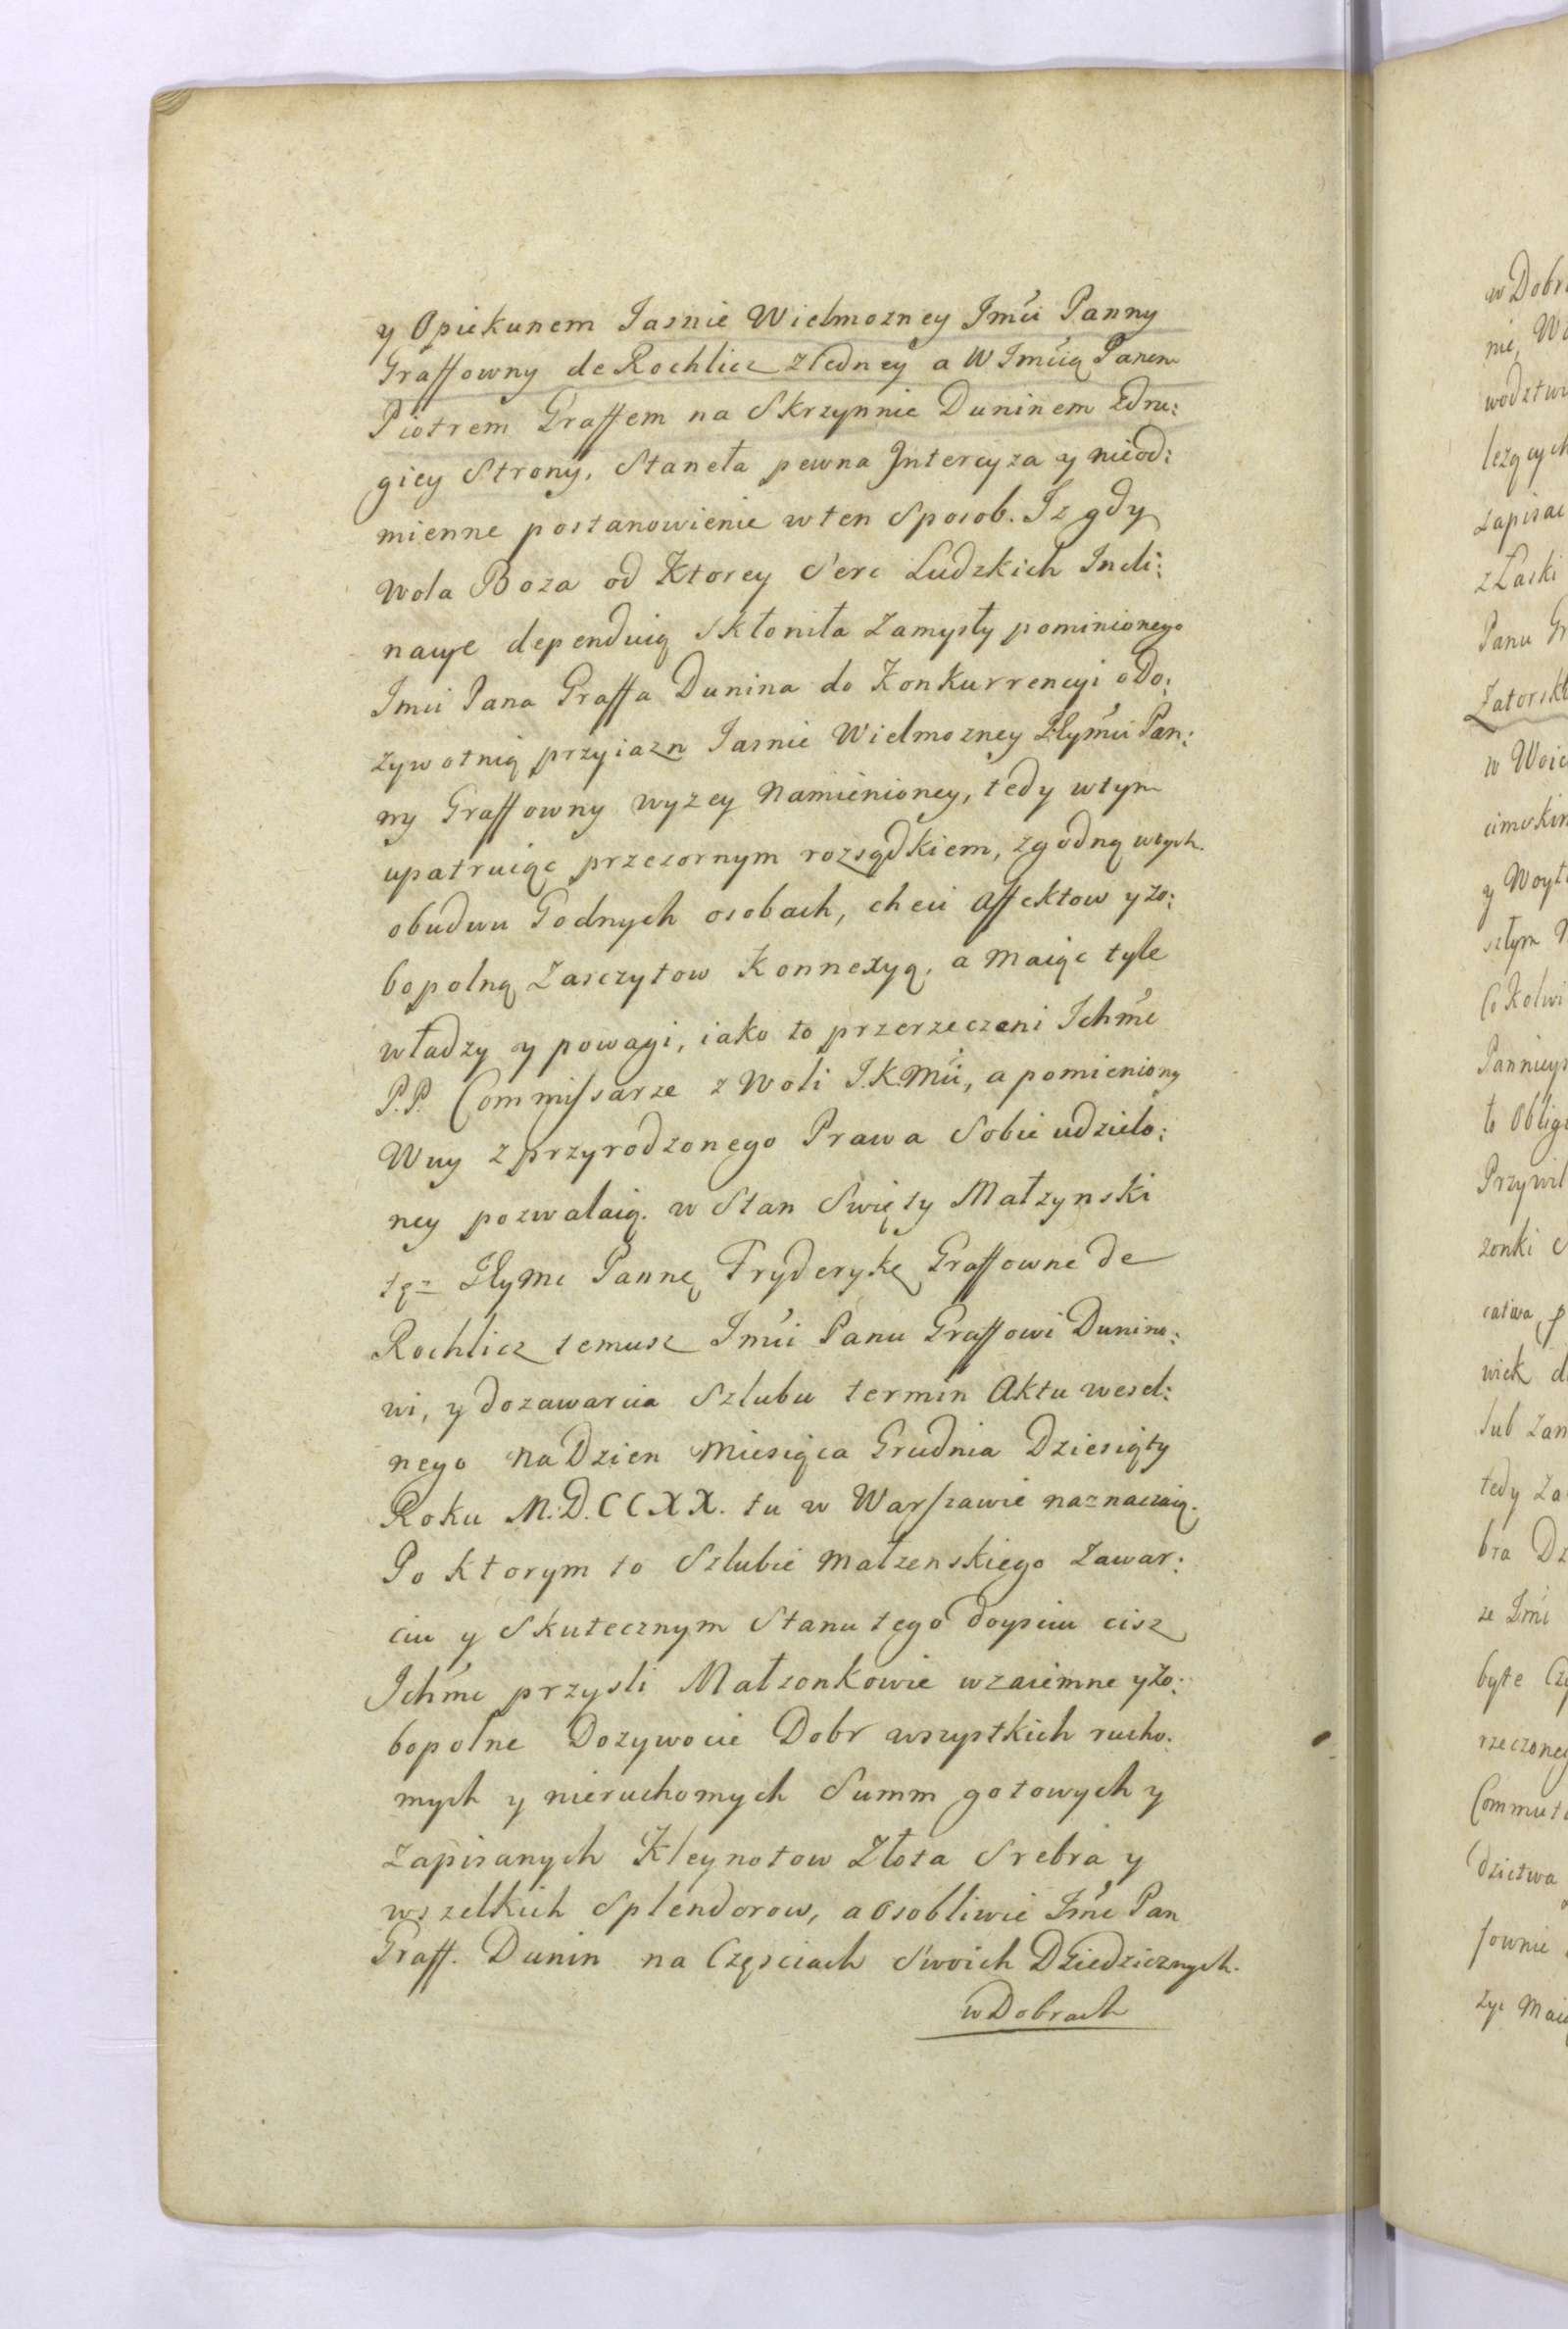 y Opiekunem Jasnie Wielmozney Jmći Panny
Graffowny de Rochlicz z Jedney a W Jmćią Panem
Piotrem Graffem na Skrzynnie Duninem Zdru:
giey Strony, Staneła pewna Intercyza y nieod:
mienne postanowienie w ten Sposob. Iz gdy
Wola Boza od Ktorey Serc Ludzkich Incli:
nacye dependuią Skłoniła Zamysły pominionego
Jmci Pana Graffa Dunina do Konkurrencyi o Do:
zywotnią przyiazn Jasnie Wielmozney Jeymći Pan:
ny Graffowny wyzey Namienioney, tedy w tym
upatruiąc przezornym rozsądkiem, zgodną w tych
obudwu Godnych osobach, chęci Affektow y zo:
bopolną Zasczytow Konnexyą, a Maiąc tyle
władzy y powagi, iako to przerzeczeni Ichmć
P.P. Commissarze z Woli J.K.Mći, a pomieniony
Wuy z przyrodzonego Prawa Sobie udzielo:
ney pozwalaią. w Stan Swięty Małzynski
tęz Jeymć Pannę Fryderykę Graffowne de
Rochlicz temusz Jmći Panu Graffowi Dunino:
wi, y do zawarcia Szlubu termin Aktu wesel:
nego Na Dzien Miesiąca Grudnia Dziesiąty
Roku M.D.CCXX. tu w Warszawie naznaczaią.
Po ktorym to Szlubie Małzenskiego Zawar:
ciu y Skutecznym Stanu tego doysciu cisz
Ichmć przysli Małzonkowie wzaiemne y zo:
bopolne Dozywocie Dobr wszystkich rucho:
mych y nieruchomych Summ gotowych y
Zapisanych Kleynotow Złota Srebra y
wszelkich Splendorow, a osobliwie Jmć Pan
Graff. Dunin na Częsciach Swoich Dziedzicznych.
w Dobrach
w Dobr
nie, W
wodztw
lezących
zapisac
z Łaski
Panu Gr
Zatorsk
w Woie
cimskim
y Woyt
szłym
Cokolwi
to Oblig
Przywil
zonki
wiek d
lub Zam
tedy Za
bra Dz
ze Jmć
rzeczoney
Commut
dzictwa